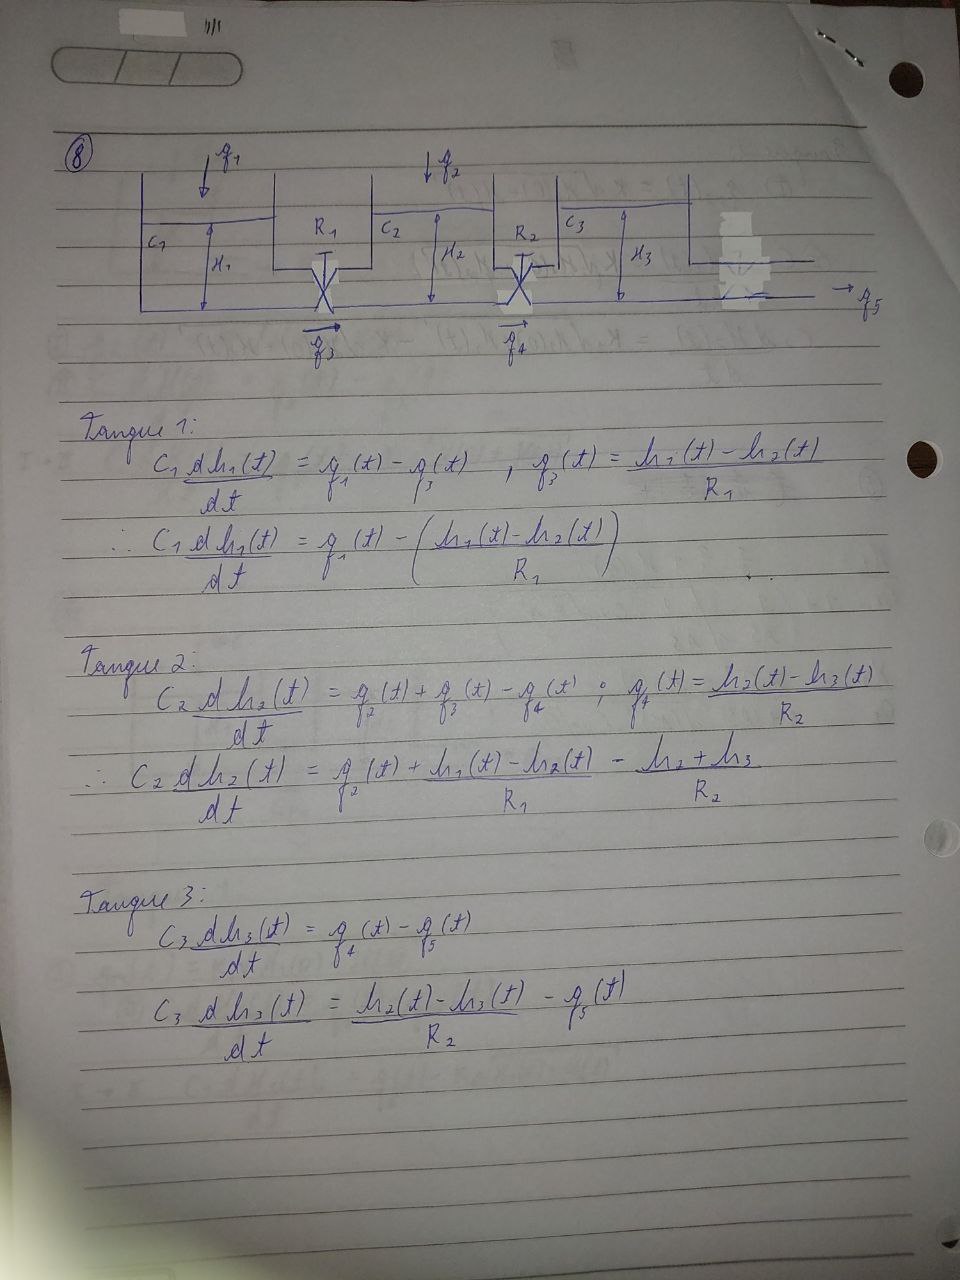 8
q₁ q₂
C₁ H₁ R₁ C₂ H₂ R₂ C₃ H₃
q₃ q₄ q₅
Tanque 1:
C₁ dh₁(t)/dt = q₁(t) - q₃(t) , q₃(t) = h₁(t) - h₂(t)/R₁
∴ C₁ dh₁(t)/dt = q₁(t) - (h₁(t) - h₂(t)/R₁)
Tanque 2:
C₂ dh₂(t)/dt = q₂(t) + q₃(t) - q₄(t) ; q₄(t) = h₂(t) - h₃(t)/R₂
∴ C₂ dh₂(t)/dt = q₂(t) + h₁(t) - h₂(t)/R₁ - h₂ + h₃/R₂
Tanque 3:
C₃ dh₃(t)/dt = q₄(t) - q₅(t)
C₃ dh₃(t)/dt = h₂(t) - h₃(t)/R₂ - q₅(t)